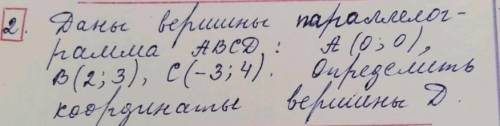 2. Даны вершины параллелог-
рамма ABCD : A (0; 0),
B(2; 3), C(-3; 4). Определить
координаты вершины D.